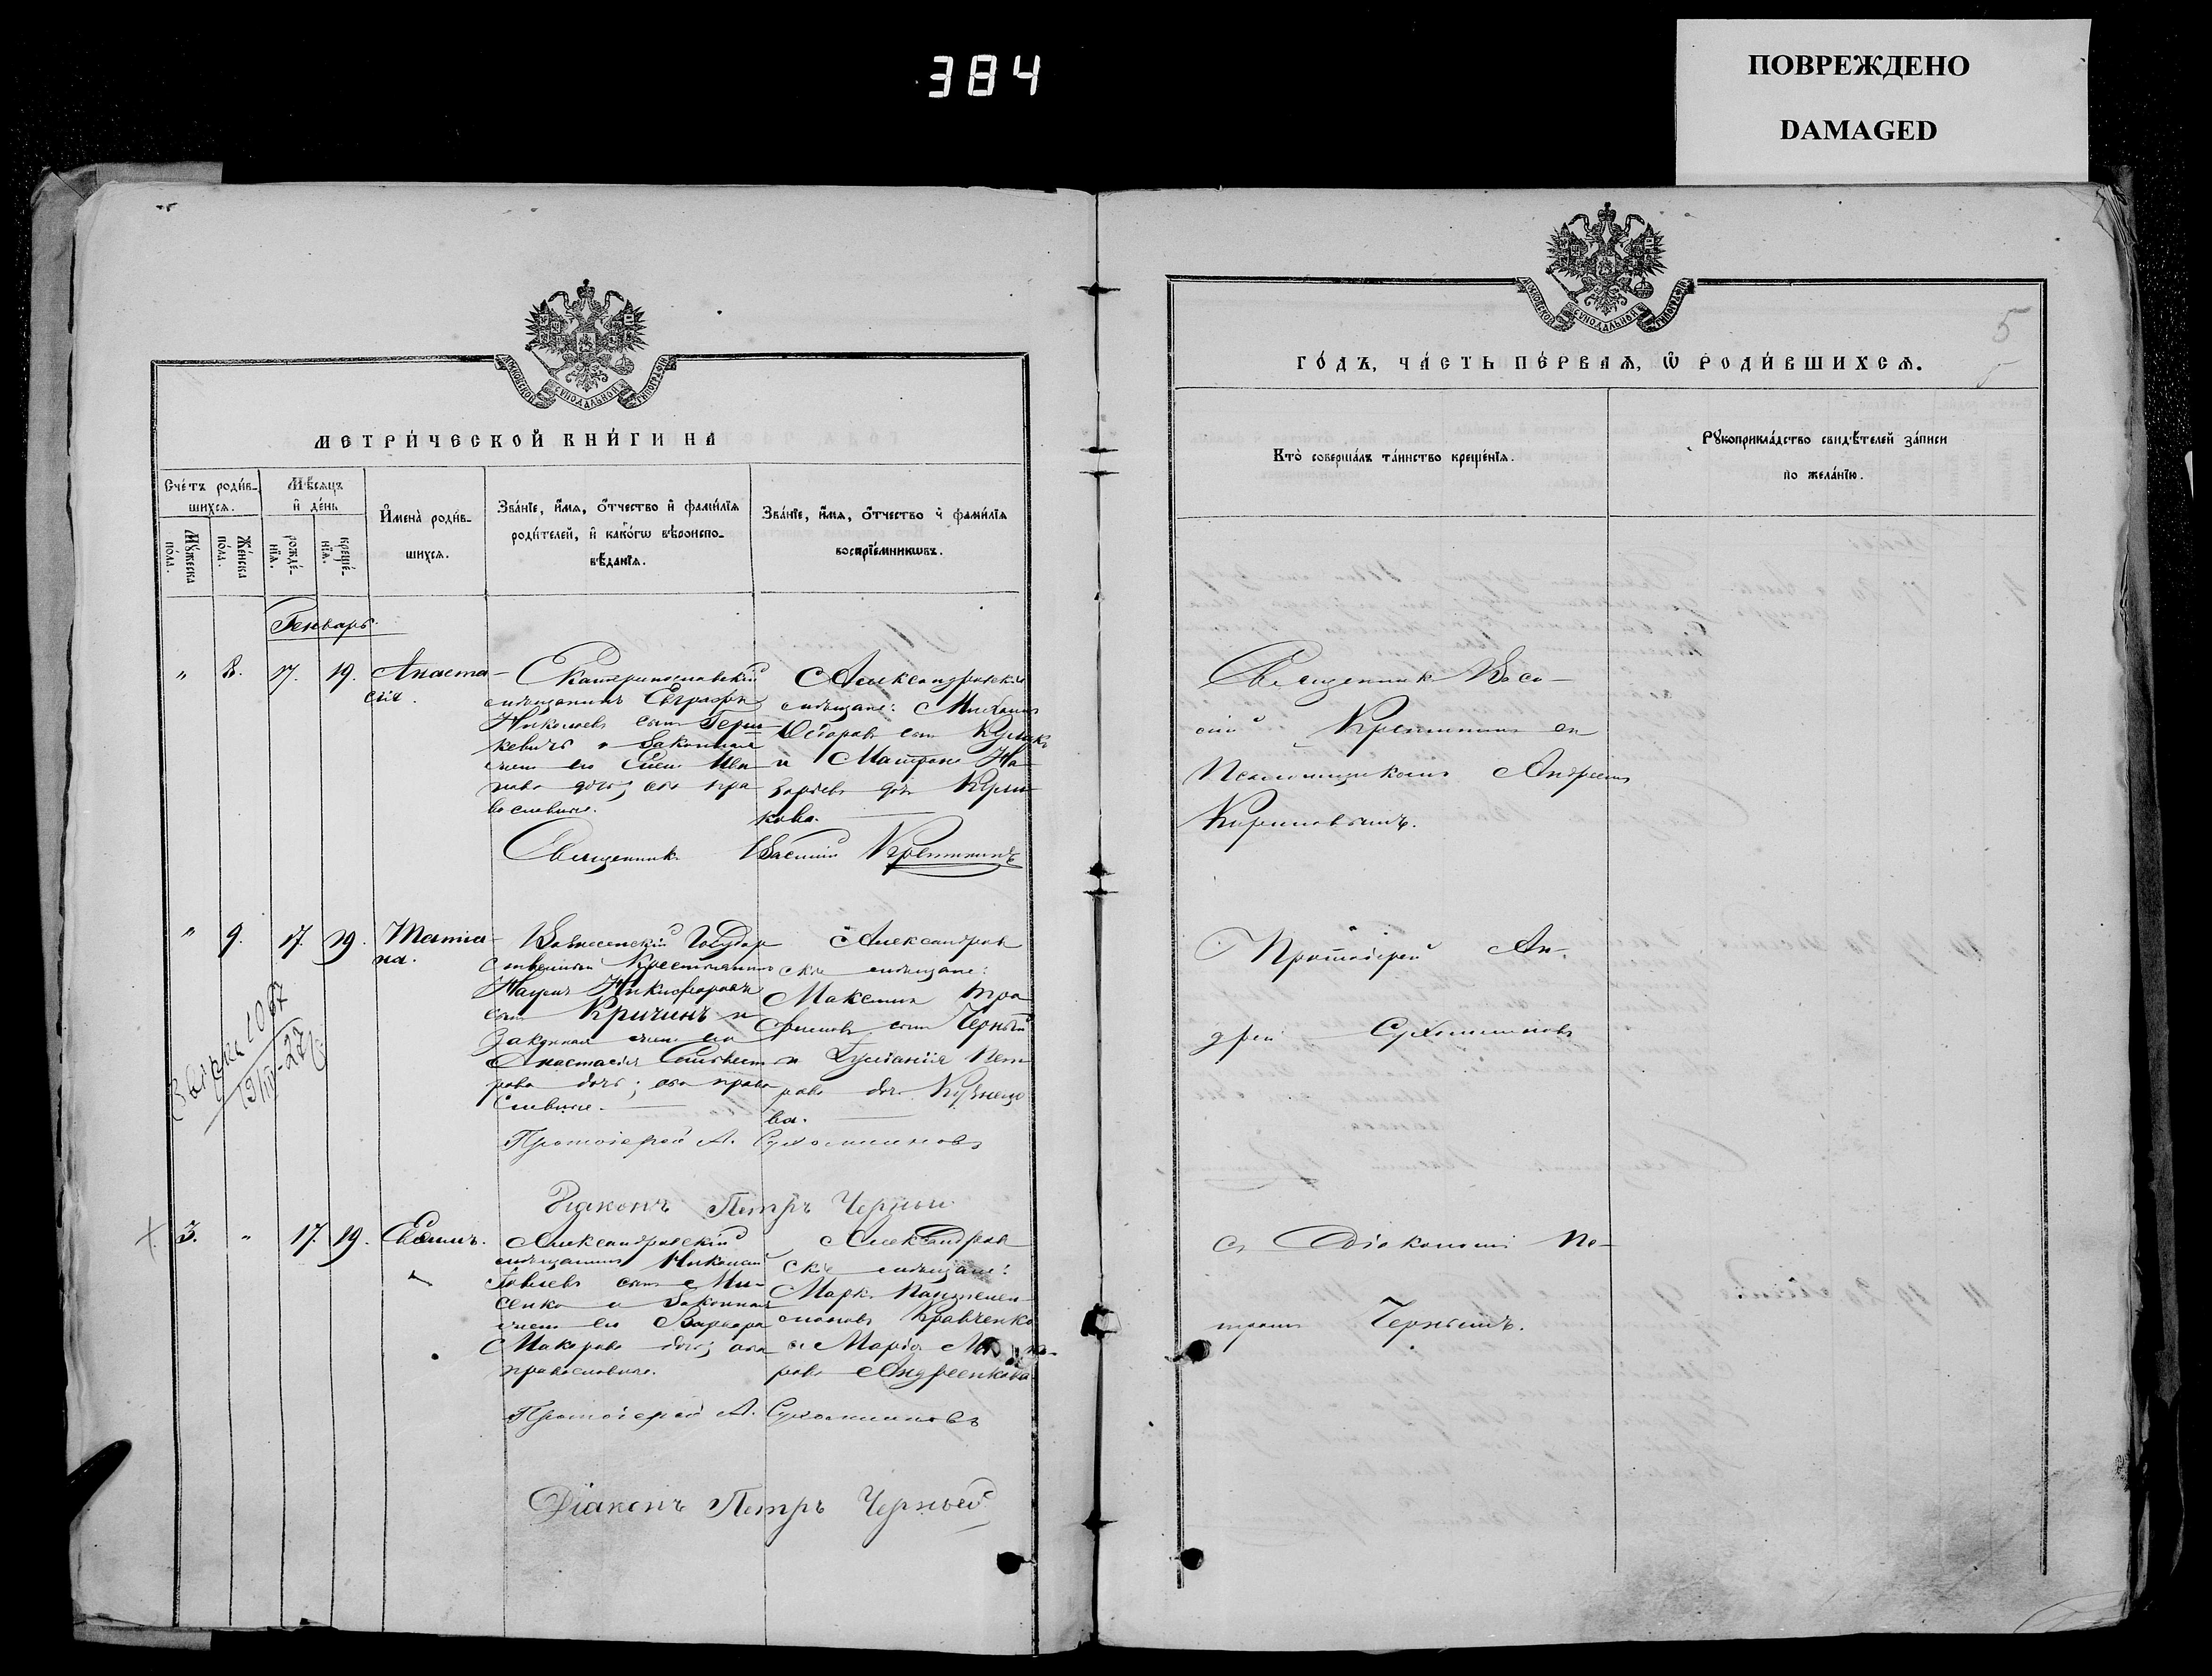 384
ПОВРЕЖДЕНО
DAMAGED
МОСКОВСКОЙ СѴНОДАЛЬНОЙ ТИПОГРАФІИ
МЕТРИ́ЧЕСКОЙ КНИ́ГИ НА
Сче́тъ роди́в-
шихсѧ.
Мѣ́сѧцъ
и҆ де́нь
Мꙋ́жеска
по́ла.
Же́нска
по́ла.
рожде́-
нїѧ.
креще́-
нїѧ.
И҆мена̀ роди́в-
шихсѧ.
Зва́нїе, и҆́мѧ, ѻ҆́тчество и҆ фами́лїѧ
роди́телей, и҆ како́гѡ вѣроиспо-
вѣ́данїѧ.
Зва́нїе, и҆́мѧ, ѻ҆́тчество и҆ фами́лїѧ
воспрїе́мникѡвъ.
Генварь.
" 8. 17. 19. Анаста-
сія.
Екатеринославскій
мѣщанинъ Евграфъ
сынъ
кевичъ и Законная
жена его Ива
нова дочь; оба пра
вославные.
Александровскіе
мѣщане: Михаилъ
Ѳедоровъ сынъ
и Матрона На
заріева дочь
кова.
Священникъ Василій
" 9. 17. 19. Татіа-
на.
Вознесенскій Государ
ственный Крестьянинъ
Наумъ Никифоровъ
сынъ Кричинъ и
Законная жена его
Анастасія Сильвест
рова дочь; оба право
славные.
Александров
скіе мѣщане:
Максимъ Тро
фимовъ сынъ Черный
и Іуліанія Пет
рова дочь Кузнецо
ва.
Протоіерей А. Сухомлиновъ
Діаконъ Петръ Черный
3. " 17. 19. Евѳимъ.
Александровскій
мѣщанинъ Николай
сынъ Ми-
сенко и Законная
жена его Варвара
Макарова дочь; оба
православные.
Александров
скіе мѣщане:
Марко Пантелей
моновъ Кравченко
и Марія
рова Андреенкова
Протоіерей А. Сухомлиновъ
Діаконъ Петръ Черный
5
ГО́ДЪ, ЧА́СТЬ ПЕ́РВАѦ, Ѽ РОДИ́ВШИХСѦ.
Кто̀ соверша́лъ та́инство креще́нїѧ.
Рꙋкоприкла́дство свидѣ́телей за́писи
по жела́нїю.
Священникъ Васи-
лій съ
Псаломщикомъ Андреемъ
Кирилловымъ.
Протоіерей Ан-
дрей Сухомлиновъ
съ Діакономъ Пе-
тромъ Чернымъ.